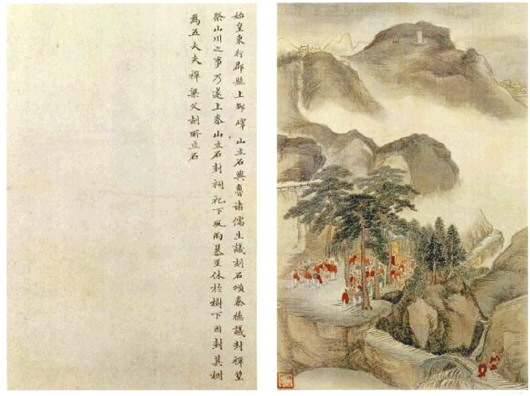 始皇東行郡縣上鄒嶧山立石與魯諸儒生議刻石頌秦德議封禪望
祭山川之事乃遂上泰山立石封祠祀下風雨暴至休於樹下因封其樹
為五大夫禪梁父刻所立石